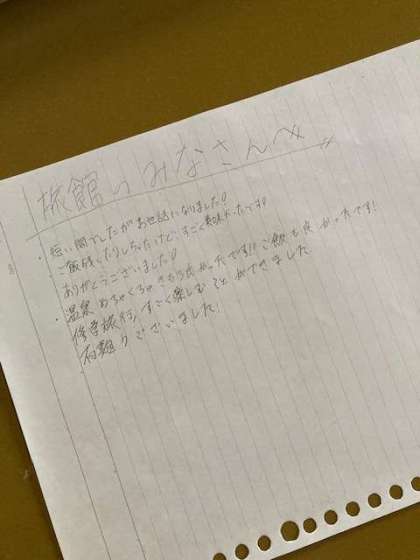 旅館のみなさんへ
・短い間でしたがお世話になりました!
ご飯残したりしちゃったけど、すごく美味かったです!
ありがとうございました!
・温泉めちゃくちゃきもち良かったです!! ご飯も良かったです!
修学旅行、すごく楽しむことができました
有難うございました!